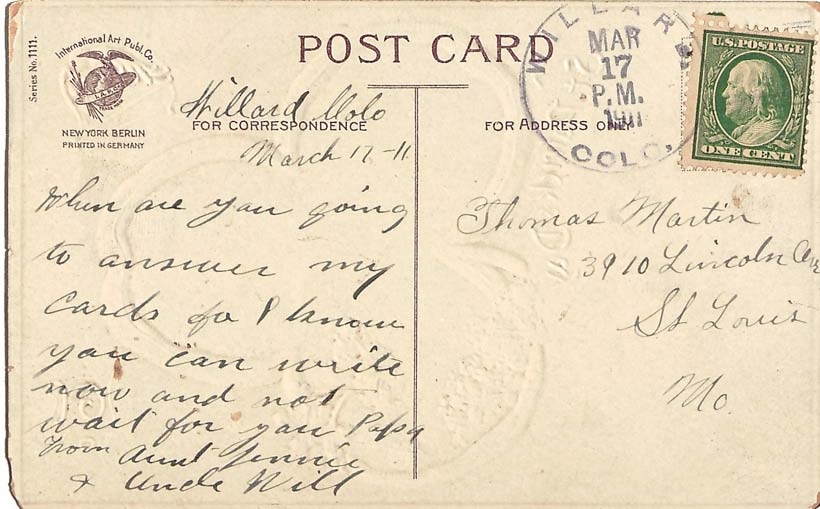 Series No. 1111.
International Art Publ. Co.
I.A.P.CO.
TRADE MARK
NEW YORK BERLIN
PRINTED IN GERMANY
POST CARD
FOR CORRESPONDENCE
FOR ADDRESS ONLY
WILLARD
MAR
17
P.M.
1911
COLO.
U.S. POSTAGE
ONE CENT
Willard Colo
March 17-11
When are you going
to answer my
cards for I know
you can write
now and not
wait for you Papa
from Aunt Jennie
& Uncle Will
Thomas Martin
3910 Lincoln Ave
St Louis
Mo.